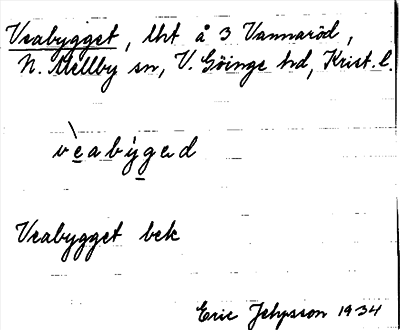 Veabygget, lht å 3 Vannaröd,
N. Mellby sn, V. Göinge hd, Krist. l.
v̀e̲abýg̲ad
Veabygget bek
Eric Jehysson 1934